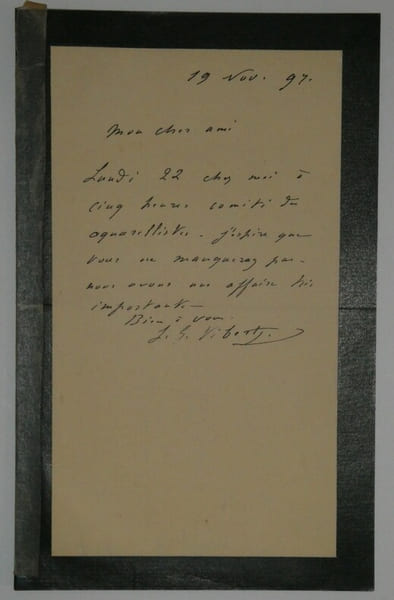 19 Nov. 97.
Mon cher ami
Lundi 22 chez moi à
cinq heures comité des
aquarellistes. J'espère que
vous ne manquerez pas.
nous avons une affaire très
importante
Bien à vous.
J. G. Vibert.